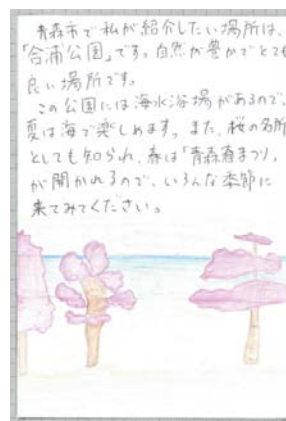 青森市で私が紹介したい場所は、
「合浦公園」です。自然が豊かでとても
良い場所です。
この公園には海水浴場があるので、
夏は海で楽しめます。また、桜の名所
としても知られ、春は「青森春まつり」
が開かれるので、いろんな季節に
来てみてください。